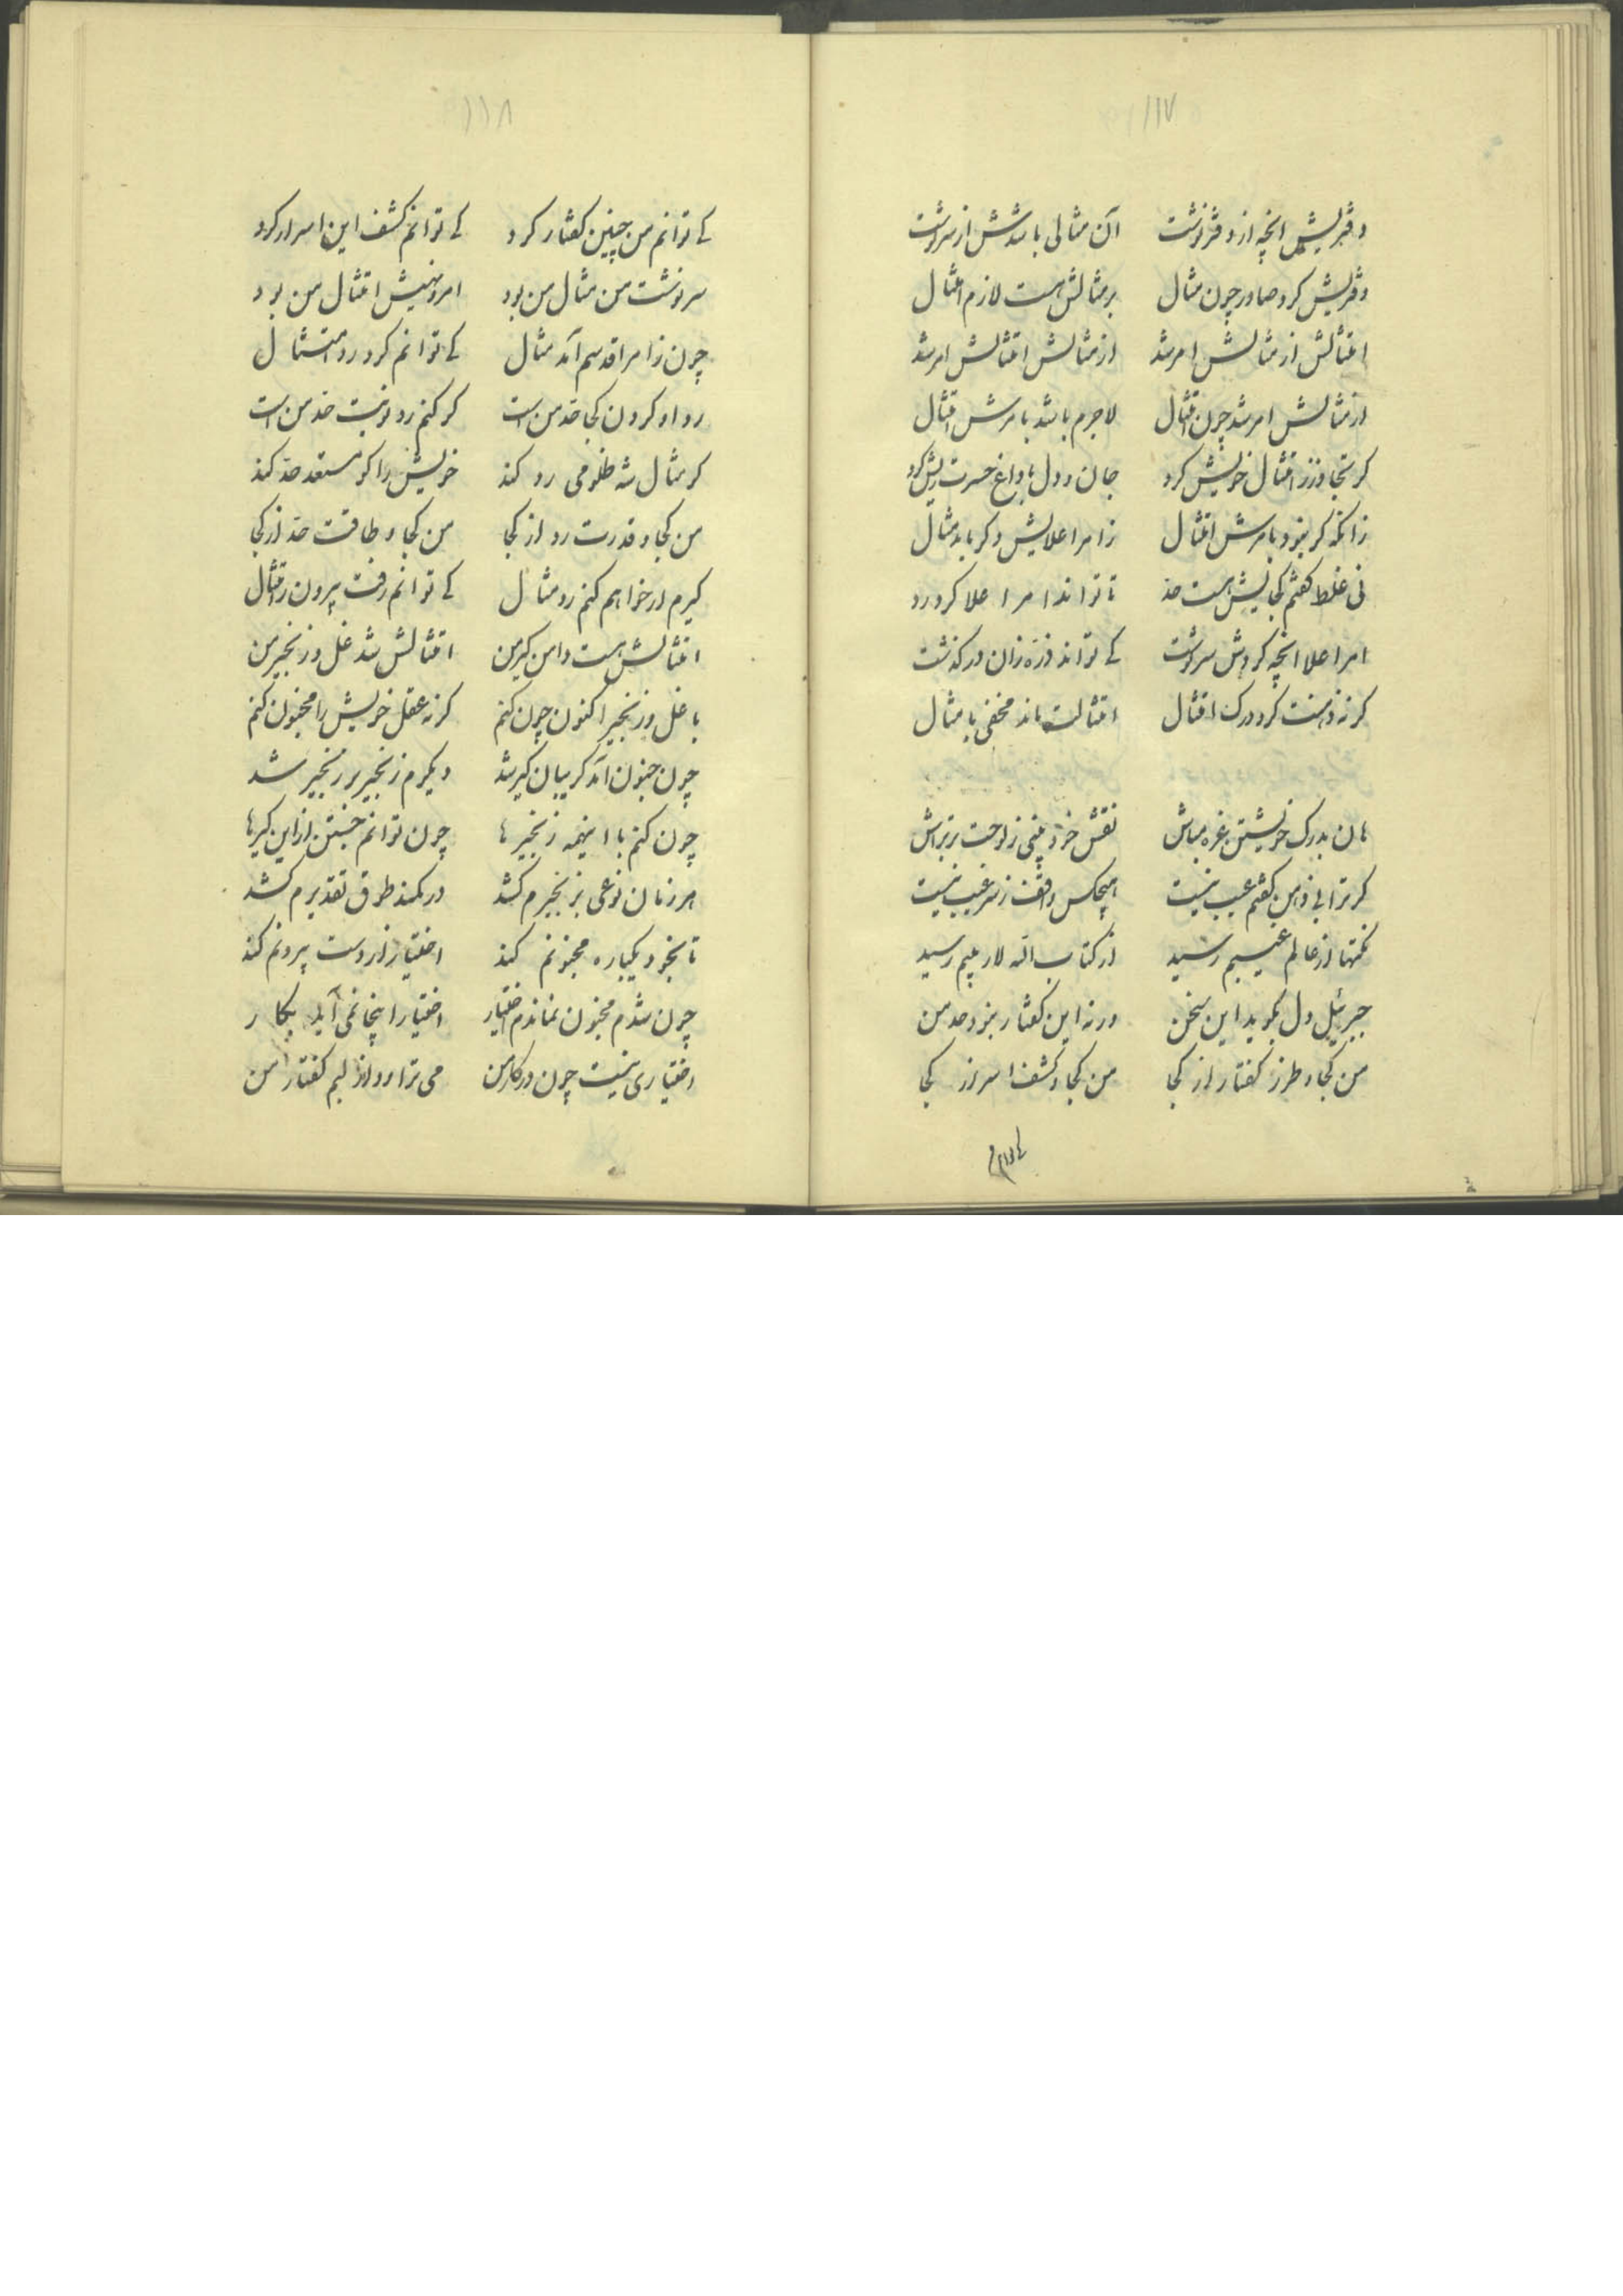 ۱۱۷
دفتریش انچه از دفتر نوشت آن مثالی باشدش از سرنوشت
دفتریش کرد صادر چون مثال بر مثالش هست لازم امتثال
امتثالش از مثالش امر شد از مثالش امتثالش امر شد
از مثالش امر شد چون امتثال لاجرم باشد بامرش امتثال
کر تجاوز ز امتثال خویش کرد جان و دل با داغ حسرت ریش کرد
زانکه کر نبود بامرش امتثال ز امر اعلایش دکر باید مثال
نی غلط کفتم کجایش هست حد تا تواند امر اعلا کرد رد
امر اعلا انچه کردش سرنوشت کے تواند ذرّه زان درکذشت
کر نه ذهنت کرد درک امتثال امتثالت ماند مخفی با مثال
هان بدرک خویشتن غره مباش نقش خودبینی ز لوحت بر تراش
کر ترا بی ذهن کفتم عیب نیست هیچکس واقف ز سر غیب نیست
نکتها از عالم غیبم رسید از کتاب الله لاریبم رسید
جبرئیل دل بکوید این سخن ورنه این کفتار نبود حد من
من کجا و طرز کفتار از کجا من کجا و کشف اسرار از کجا
کے توانم
۱۱۸
کے توانم من چنین کفتار کرد کے توانم کشف این اسرار کرد
سرنوشت من مثال من بود امر و نهیش امتثال من بود
چون ز امر اقدسم آمد مثال کے توانم کرد رد امتثال
رد او کردن کجا حد من است کر کنم رد نوبت حد من است
کر مثال شه ظلومی رد کند خویش را کو مستعد حد کند
من کجا و قدرت رد از کجا من کجا و طاقت حد از کجا
کیرم ار خواهم کنم رد مثال کے توانم رفت بیرون ز امتثال
امتثالش هست دامن کیر من امتثالش شد غل و زنجیر من
با غل و زنجیر اکنون چون کنم کر نه عقل خویش را مجنون کنم
چون جنون آمد کریبان کیر شد دیکرم زنجیر بر زنجیر شد
چون کنم با اینهمه زنجیرها چون توانم جستن از این کیرها
هر زمان نوعی بزنجیرم کشد در کمند طوق تقدیرم کشد
تا بخود یکباره مجنونم کند اختیار از دست بیرونم کند
چون شدم مجنون نماندم اختیار اختیار اینجا نمی آید بکار
اختیاری نیست چون در کار من می تراود از لبم کفتار من